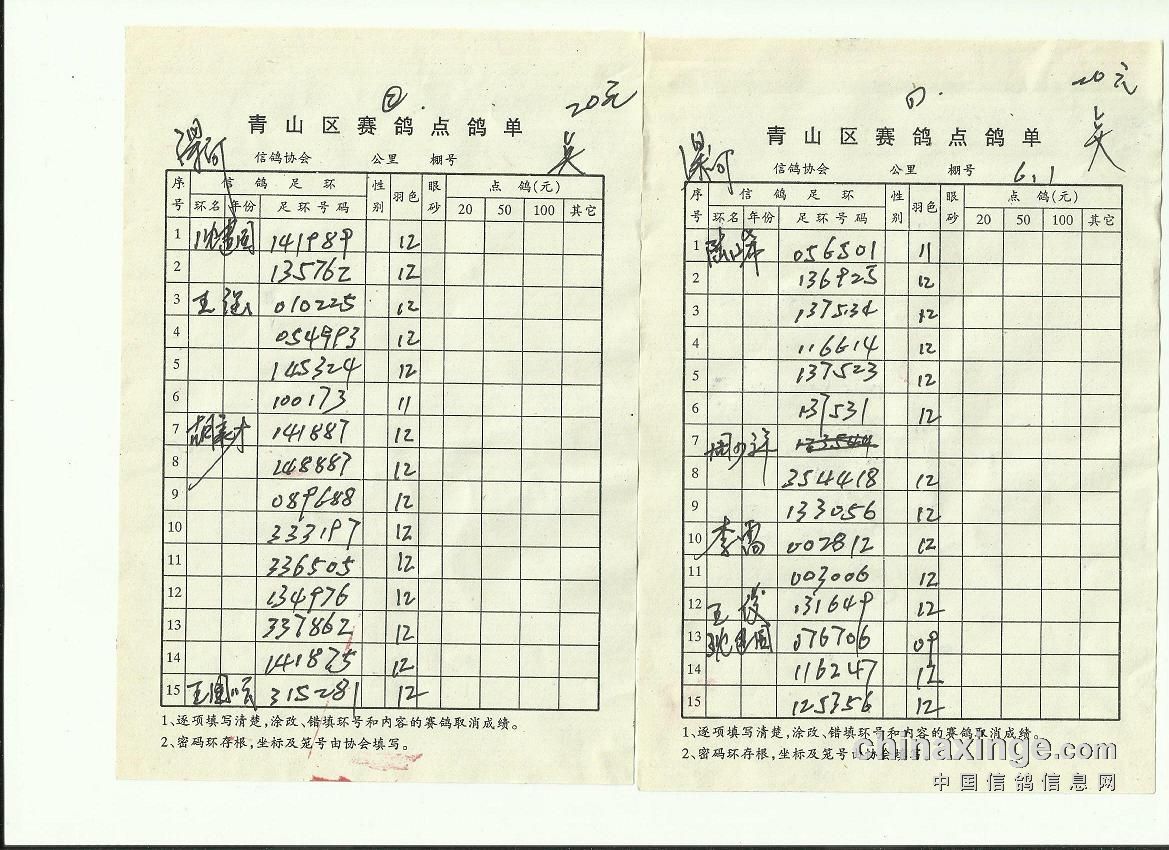 20元
青山区赛鸽点鸽单
漯河
信鸽协会 公里 棚号
序号 信鸽足环 性别 羽色 眼砂 点鸽(元)
环名 年份 足环号码 20 50 100 其它
1 141989 12
2 135762 12
3 王强 010225 12
4 054993 12
5 145324 12
6 100173 11
7 141887 12
8 148887 12
9 089688 12
10 333197 12
11 336505 12
12 134976 12
13 337862 12
14 141875 12
15 315281 12
1、逐项填写清楚,涂改、错填环号和内容的赛鸽取消成绩。
2、密码环存根,坐标及笼号由协会填写。
20元
青山区赛鸽点鸽单
漯河
信鸽协会 公里 棚号
6.1
序号 信鸽足环 性别 羽色 眼砂 点鸽(元)
环名 年份 足环号码 20 50 100 其它
1 056501 11
2 136925 12
3 137534 12
4 116614 12
5 137523 12
6 137531 12
7
8 354418 12
9 133056 12
10 李雷 002812 12
11 003006 12
12 王俊 131649 12
13 076706 09
14 116247 12
15 125356 12
1、逐项填写清楚,涂改、错填环号和内容的赛鸽取消成绩。
2、密码环存根,坐标及笼号由协会填写
chinaxinge.com
中国信鸽信息网